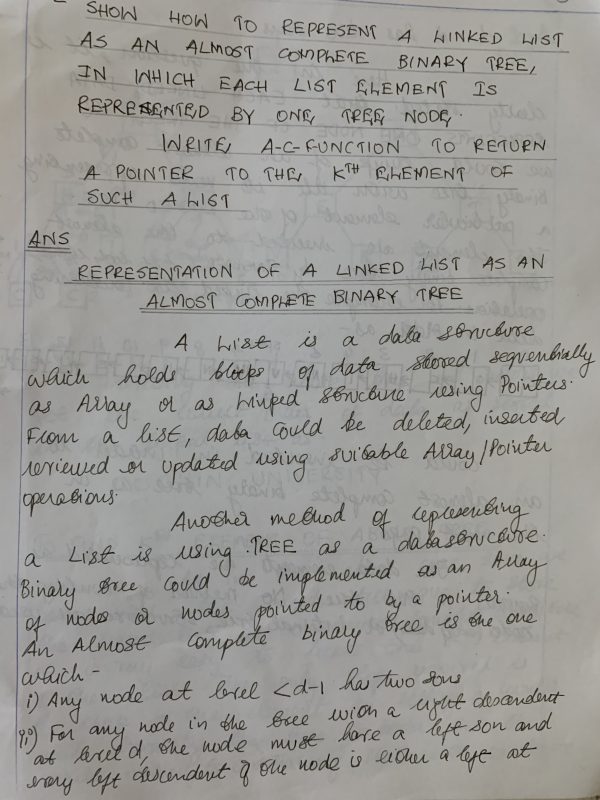 SHOW HOW TO REPRESENT A LINKED LIST
AS AN ALMOST COMPLETE BINARY TREE,
IN WHICH EACH LIST ELEMENT IS
REPRESENTED BY ONE TREE NODE.
WRITE A-C-FUNCTION TO RETURN
A POINTER TO THE KTH ELEMENT OF
SUCH A LIST
ANS
REPRESENTATION OF A LINKED LIST AS AN
ALMOST COMPLETE BINARY TREE
A List is a data structure
which holds blocks of data stored sequentially
as Array or as Linked structure using Pointers.
From a list, data could be deleted, inserted
reviewed or updated using suitable Array/Pointer
operations.
Another method of representing
a List is using TREE as a datastructure.
Binary tree could be implemented as an Array
of nodes or nodes pointed to by a pointer.
An Almost complete binary tree is the one
which -
i) Any node at level <d-1 has two sons
ii) For any node in the tree with a right descendent
at level d, the node must have a left son and
every left descendent of the node is either a left at